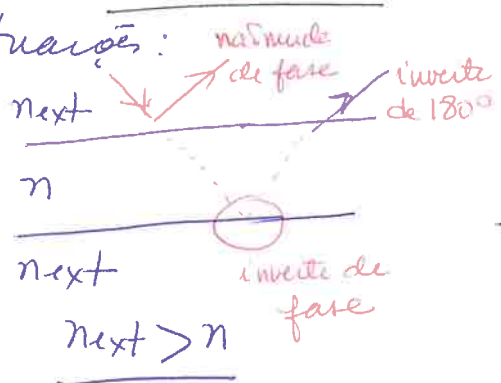 tuações:
não mude
de fase
inverte
de 180°
next
n
next
inverte de
fase
next > n